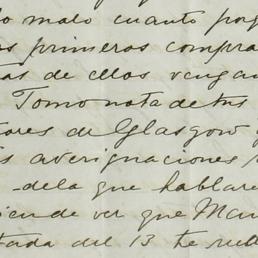 o malo cuanto por
s primeros compra
as de ellos vengan
Tomo nota de tus
tores de Glasgow
s averignaciones
de la que hablare
de ver que Man
tada del 13 te